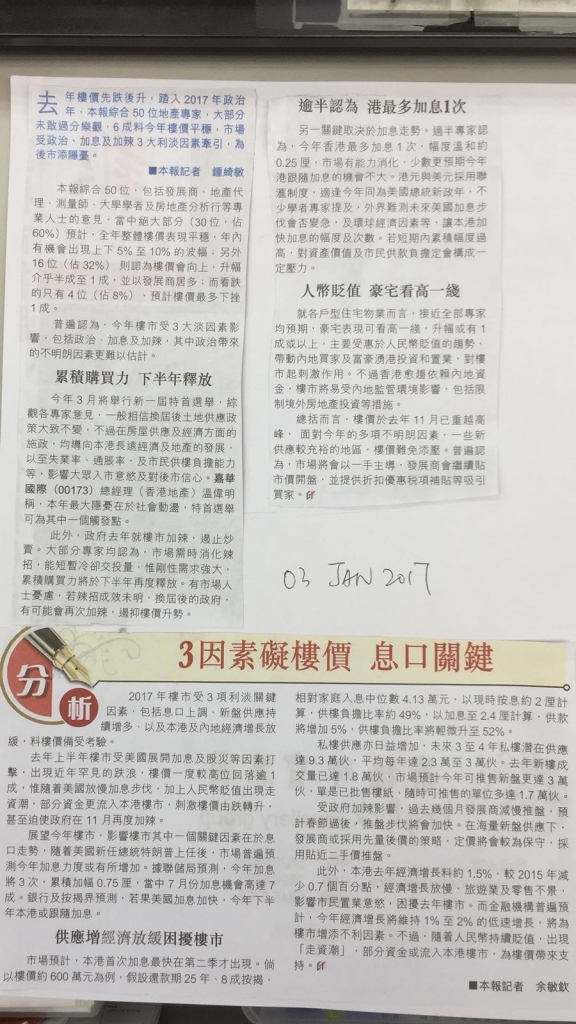 去年樓價先跌後升，踏入2017年政治
年，本報綜合50位地產專家，大部分
未敢過分樂觀，6成料今年樓價平穩，市場
受政治、加息及加辣3大利淡因素牽引，為
後市添隱憂。
■本報記者　鍾綺敏
本報綜合50位，包括發展商、地產代
理、測量師、大學學者及房地產分析行等專
業人士的意見，當中絕大部分（30位，佔
60%）預計，全年整體樓價表現平穩，年內
有機會出現上下5%至10%的波幅；另外
16位（佔32%）則認為樓價會向上，升幅
介乎半成至1成，並以發展商居多；而看跌
的只有4位（佔8%），預計樓價最多下挫
1成。
普遍認為，今年樓市受3大淡因素影
響，包括政治、加息及加辣，其中政治帶來
的不明朗因素更難以估計。
累積購買力 下半年釋放
今年3月將舉行新一屆特首選舉，綜
觀各專家意見，一般相信換屆後土地供應政
策大致不變，不過在房屋供應及經濟方面的
施政，均導向本港長遠經濟及地產的發展，
以至失業率、通脹率，及市民供樓負擔能力
等，影響大眾入市意慾及對後市信心。嘉華
國際（00173）總經理（香港地產）溫偉明
稱，本年最大隱憂在於社會動盪，特首選舉
可為其中一個觸發點。
此外，政府去年就樓市加辣，遏止炒
賣。大部分專家均認為，市場需時消化辣
招，能短暫冷卻交投量，惟剛性需求強大，
累積購買力將於下半年再度釋放。有市場人
士憂慮，若辣招成效未明，換屆後的政府，
有可能會再次加辣，遏抑樓價升勢。
逾半認為 港最多加息1次
另一關鍵取決於加息走勢。過半專家認
為，今年香港最多加息1次，幅度溫和約
0.25厘，市場有能力消化，少數更預期今年
港跟隨加息的機會不大。港元與美元採用聯
滙制度，適逢今年同為美國總統新政年，不
少學者專家提及，外界難測未來美國加息步
伐會否變急，及環球經濟因素等，讓本港加
快加息的幅度及次數。若短期內累積幅度過
高，對資產價值及市民供款負擔定會構成一
定壓力。
人幣貶值 豪宅看高一綫
就各戶型住宅物業而言，接近全部專家
均預期，豪宅表現可看高一綫，升幅或有1
成或以上，主要受惠於人民幣貶值的趨勢，
帶動內地買家及富豪湧港投資和置業，對樓
市起刺激作用。不過香港愈趨依賴內地資
金，樓市將易受內地監管環境影響，包括限
制境外房地產投資等措施。
總括而言，樓價於去年11月已重越高
峰，面對今年的多項不明朗因素，一些新
供應較充裕的地區，樓價難免添壓。普遍認
為，市場將會以一手主導，發展商會繼續貼
市價開盤，並提供折扣優惠稅項補貼等吸引
買家。
03 JAN 2017
分析
3因素礙樓價 息口關鍵
2017年樓市受3項利淡關鍵
因素，包括息口上調、新盤供應持
續增多、以及本港及內地經濟增長放
緩，料樓價備受考驗。
去年上半年樓市受美國展開加息及股災等因素打
擊，出現近年罕見的跌浪，樓價一度較高位回落逾1
成，惟隨着美國放慢加息步伐，加上人民幣貶值出現走
資潮，部分資金更流入本港樓市，刺激樓價由跌轉升，
甚至迫使政府在11月再度加辣。
展望今年樓市，影響樓市其中一個關鍵因素在於息
口走勢，隨着美國新任總統特朗普上任後，市場普遍預
測今年加息力度或有所增加。據聯儲局預測，今年加息
將3次，累積加幅0.75厘，當中7月份加息機會高達7
成。銀行及按揭界預測，若果美國加息加快，今年下半
年本港或跟隨加息。
供應增經濟放緩困擾樓市
市場預計，本港首次加息最快在第二季才出現。倘
以樓價約600萬元為例，假設還款期25年、8成按揭，
相對家庭入息中位數4.13萬元，以現時按息約2厘計
算，供樓負擔比率約49%，以加息至2.4厘計算，供款
將增加5%，供樓負擔比率將輕微升至52%。
私樓供應亦日益增加，未來3至4年私樓潛在供應
達9.3萬伙，平均每年達2.3萬至3萬伙。去年新樓成
交量已達1.8萬伙，市場預計今年可推售新盤更達3萬
伙，單是已批售樓紙，隨時可推售的單位多達1.7萬伙。
受政府加辣影響，過去幾個月發展商減慢推盤，預
計春節過後，推盤步伐將會加快。在海量新盤供應下，
發展商或採用先量後價的策略，定價將會較為保守，採
用貼近二手價推盤。
此外，本港去年經濟增長料約1.5%，較2015年減
少0.7個百分點，經濟增長放慢、旅遊業及零售不景，
影響市民置業意慾，困擾去年樓市。而金融機構普遍預
計，今年經濟增長將維持1%至2%的低速增長，將為
樓市增添不利因素。不過，隨着人民幣持續貶值，出現
「走資潮」，部分資金或流入本港樓市，為樓價帶來支
持。
■本報記者　余敏欽